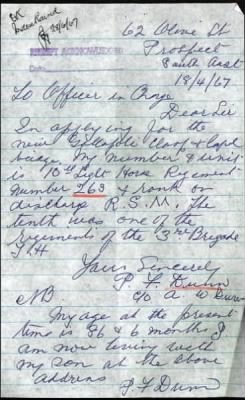 OK
Index Card
28/4/67
RECEIPT ACKNOWLEDGED
Date
62 Olive St
Prospect
South Aust
18/4/67
To Officer in Charge
Dear Sir
In applying for the
new Gallipoli Cloof & Cape
badge. My number & unit
is 10th Light Horse Regement
number 763 & rank on
discharge R.S.M. The
tenth was one of the
regiments of the 3rd Brigade
L H
Yours Sincerely
P. F. Dunn
c/o A W Dunn
NB
My age at the present
time is 86 & 6 months I
am now living with
my son at the above
address
P F Dunn